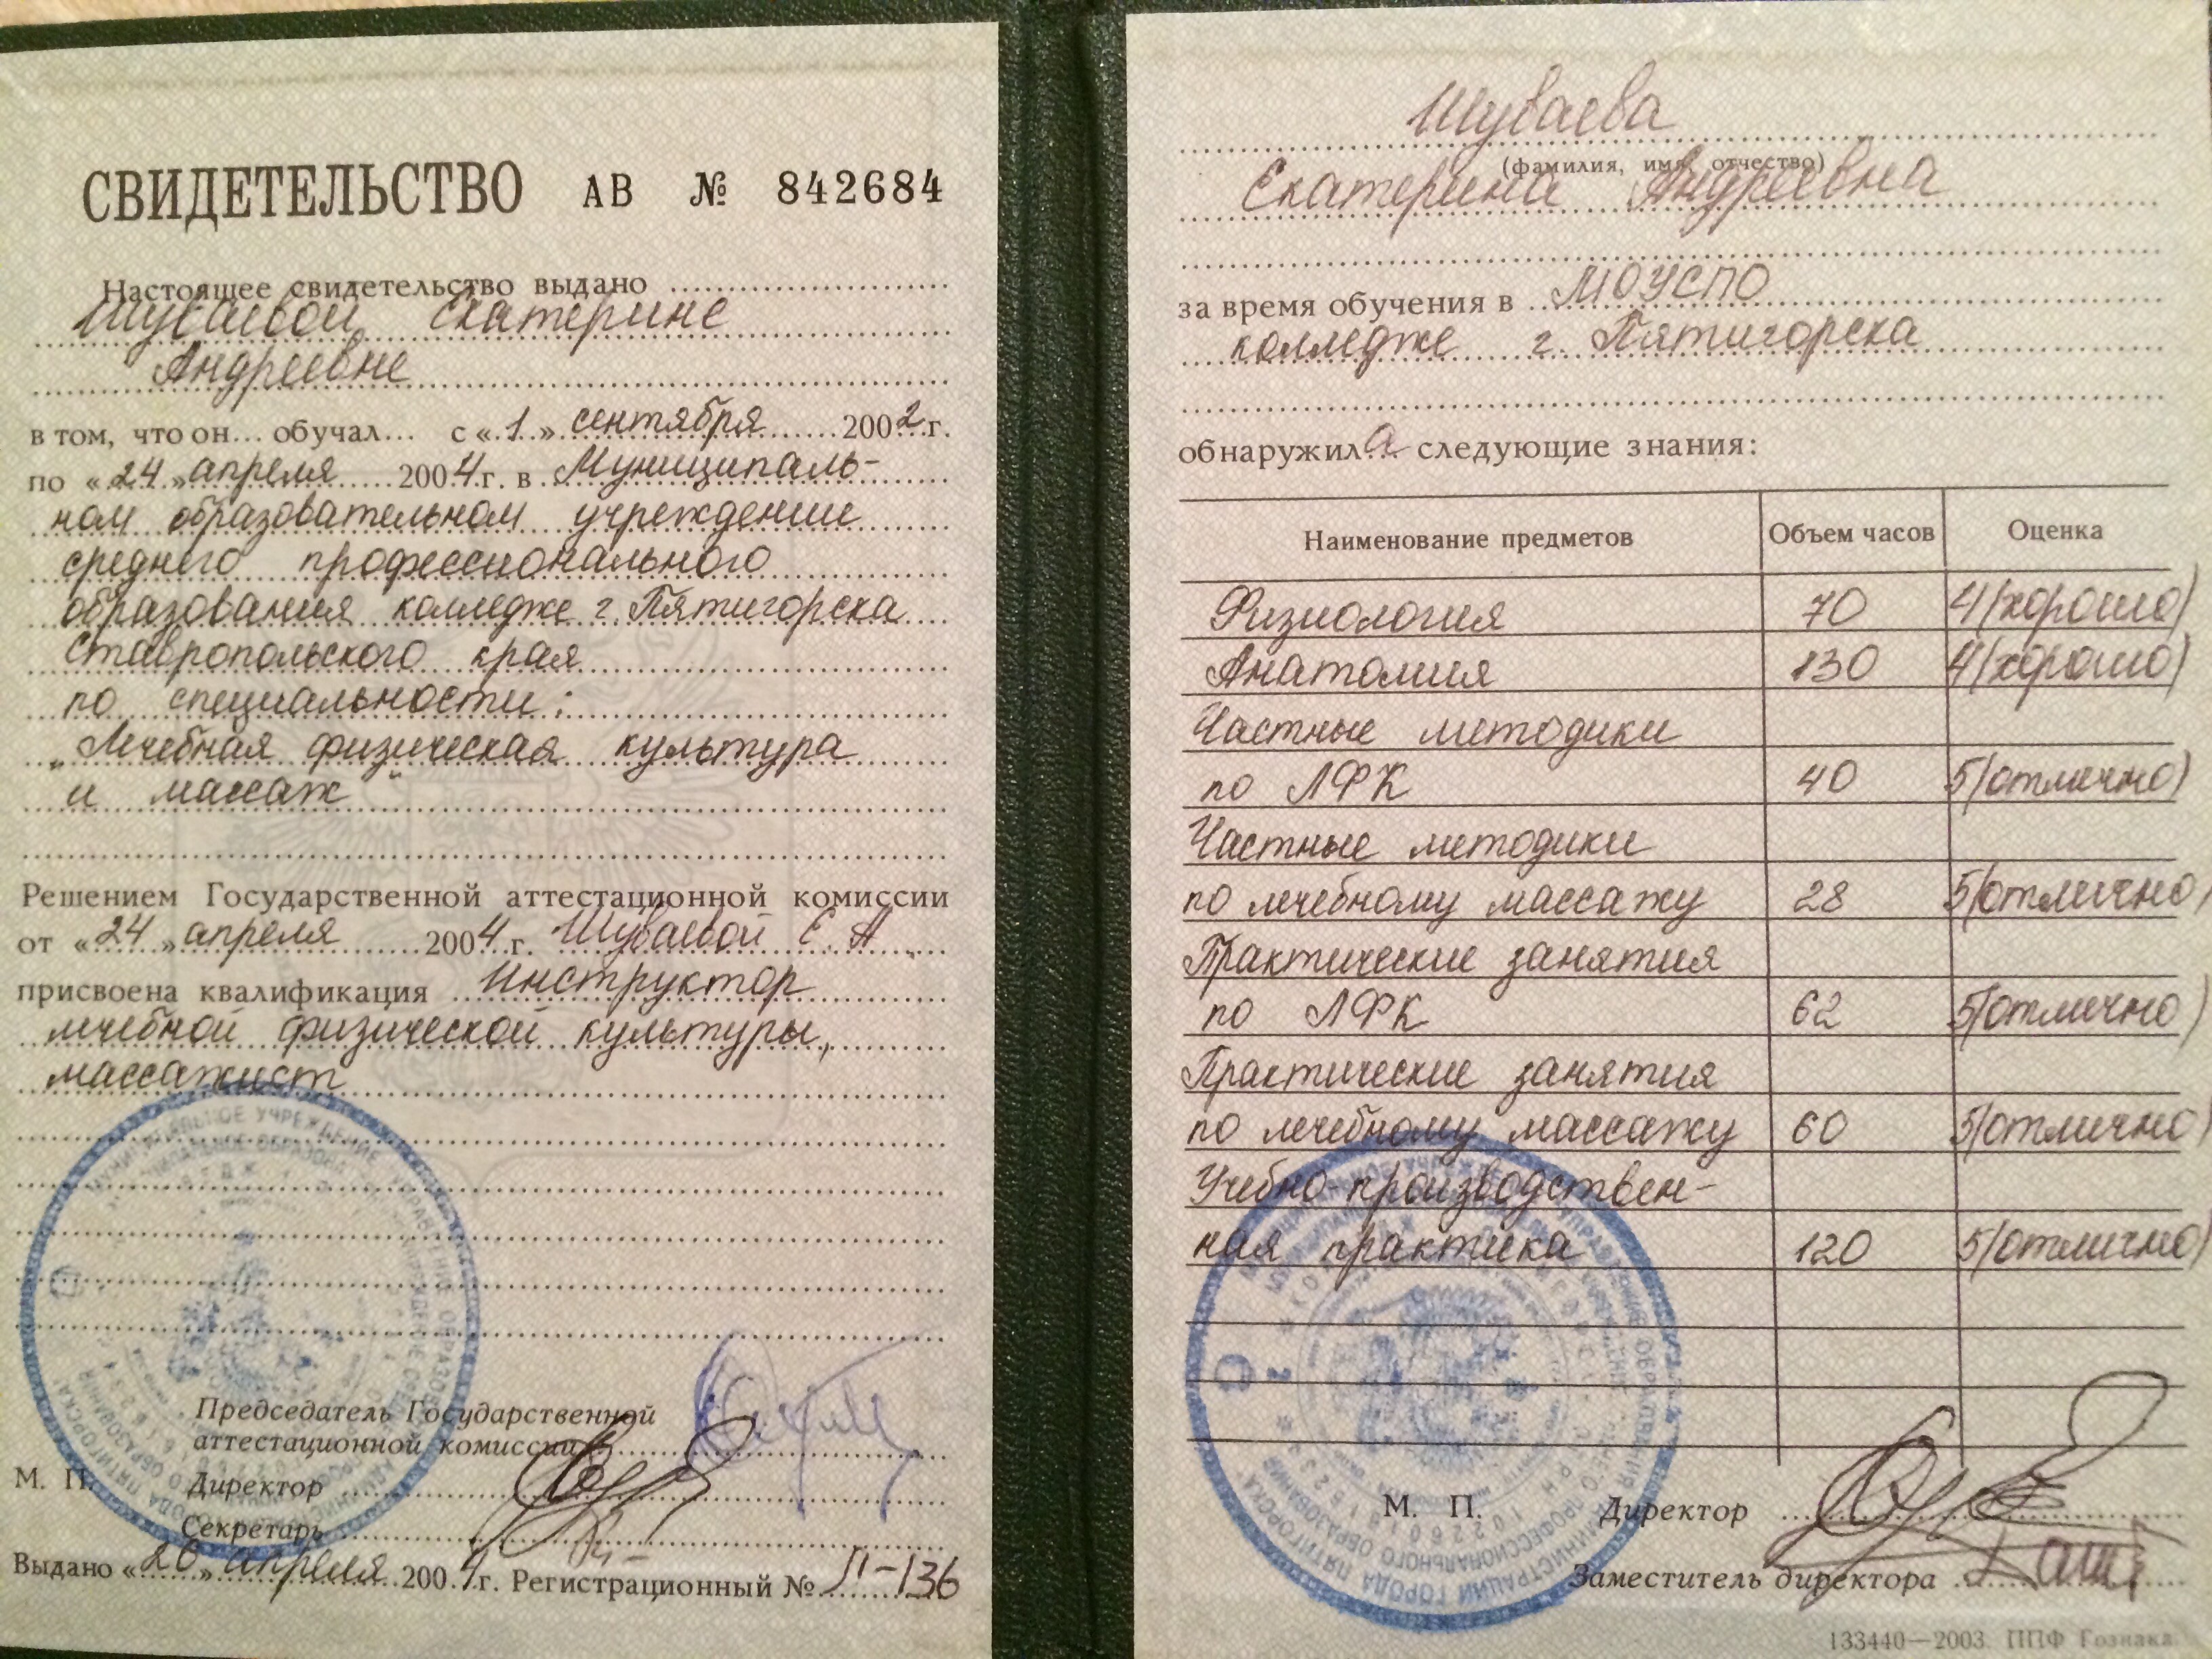 СВИДЕТЕЛЬСТВО АВ № 842684
Настоящее свидетельство выдано
Шуваевой Екатерине
Андреевне
в том, что он... обучал... с «1» сентября 2002 г.
по «24» апреля 2004 г. в Муниципаль-
ном образовательном учреждении
среднего профессионального
образования колледже г. Пятигорска
Ставропольского края
по специальности:
„Лечебная физическая культура
и массаж"
Решением Государственной аттестационной комиссии
от «24» апреля 2004 г. Шуваевой Е. А.
присвоена квалификация Инструктор
лечебной физической культуры,
массажист
Председатель Государственной
аттестационной комиссии
М. П. Директор
Секретарь
Выдано «20» апреля 2004 г. Регистрационный № II-136
Шуваева
(фамилия, имя, отчество)
Екатерина Андреевна
за время обучения в МОУСПО
колледже г. Пятигорска
обнаружила следующие знания:
Наименование предметов Объем часов Оценка
Физиология 70 4(хорошо)
Анатомия 130 4(хорошо)
Частные методики
по ЛФК 40 5(отлично)
Частные методики
по лечебному массажу 28 5(отлично)
Практические занятия
по ЛФК 62 5(отлично)
Практические занятия
по лечебному массажу 60 5(отлично)
Учебно-производствен-
ная практика 120 5(отлично)
М. П. Директор
Заместитель директора
133440—2003. ППФ Гознака.